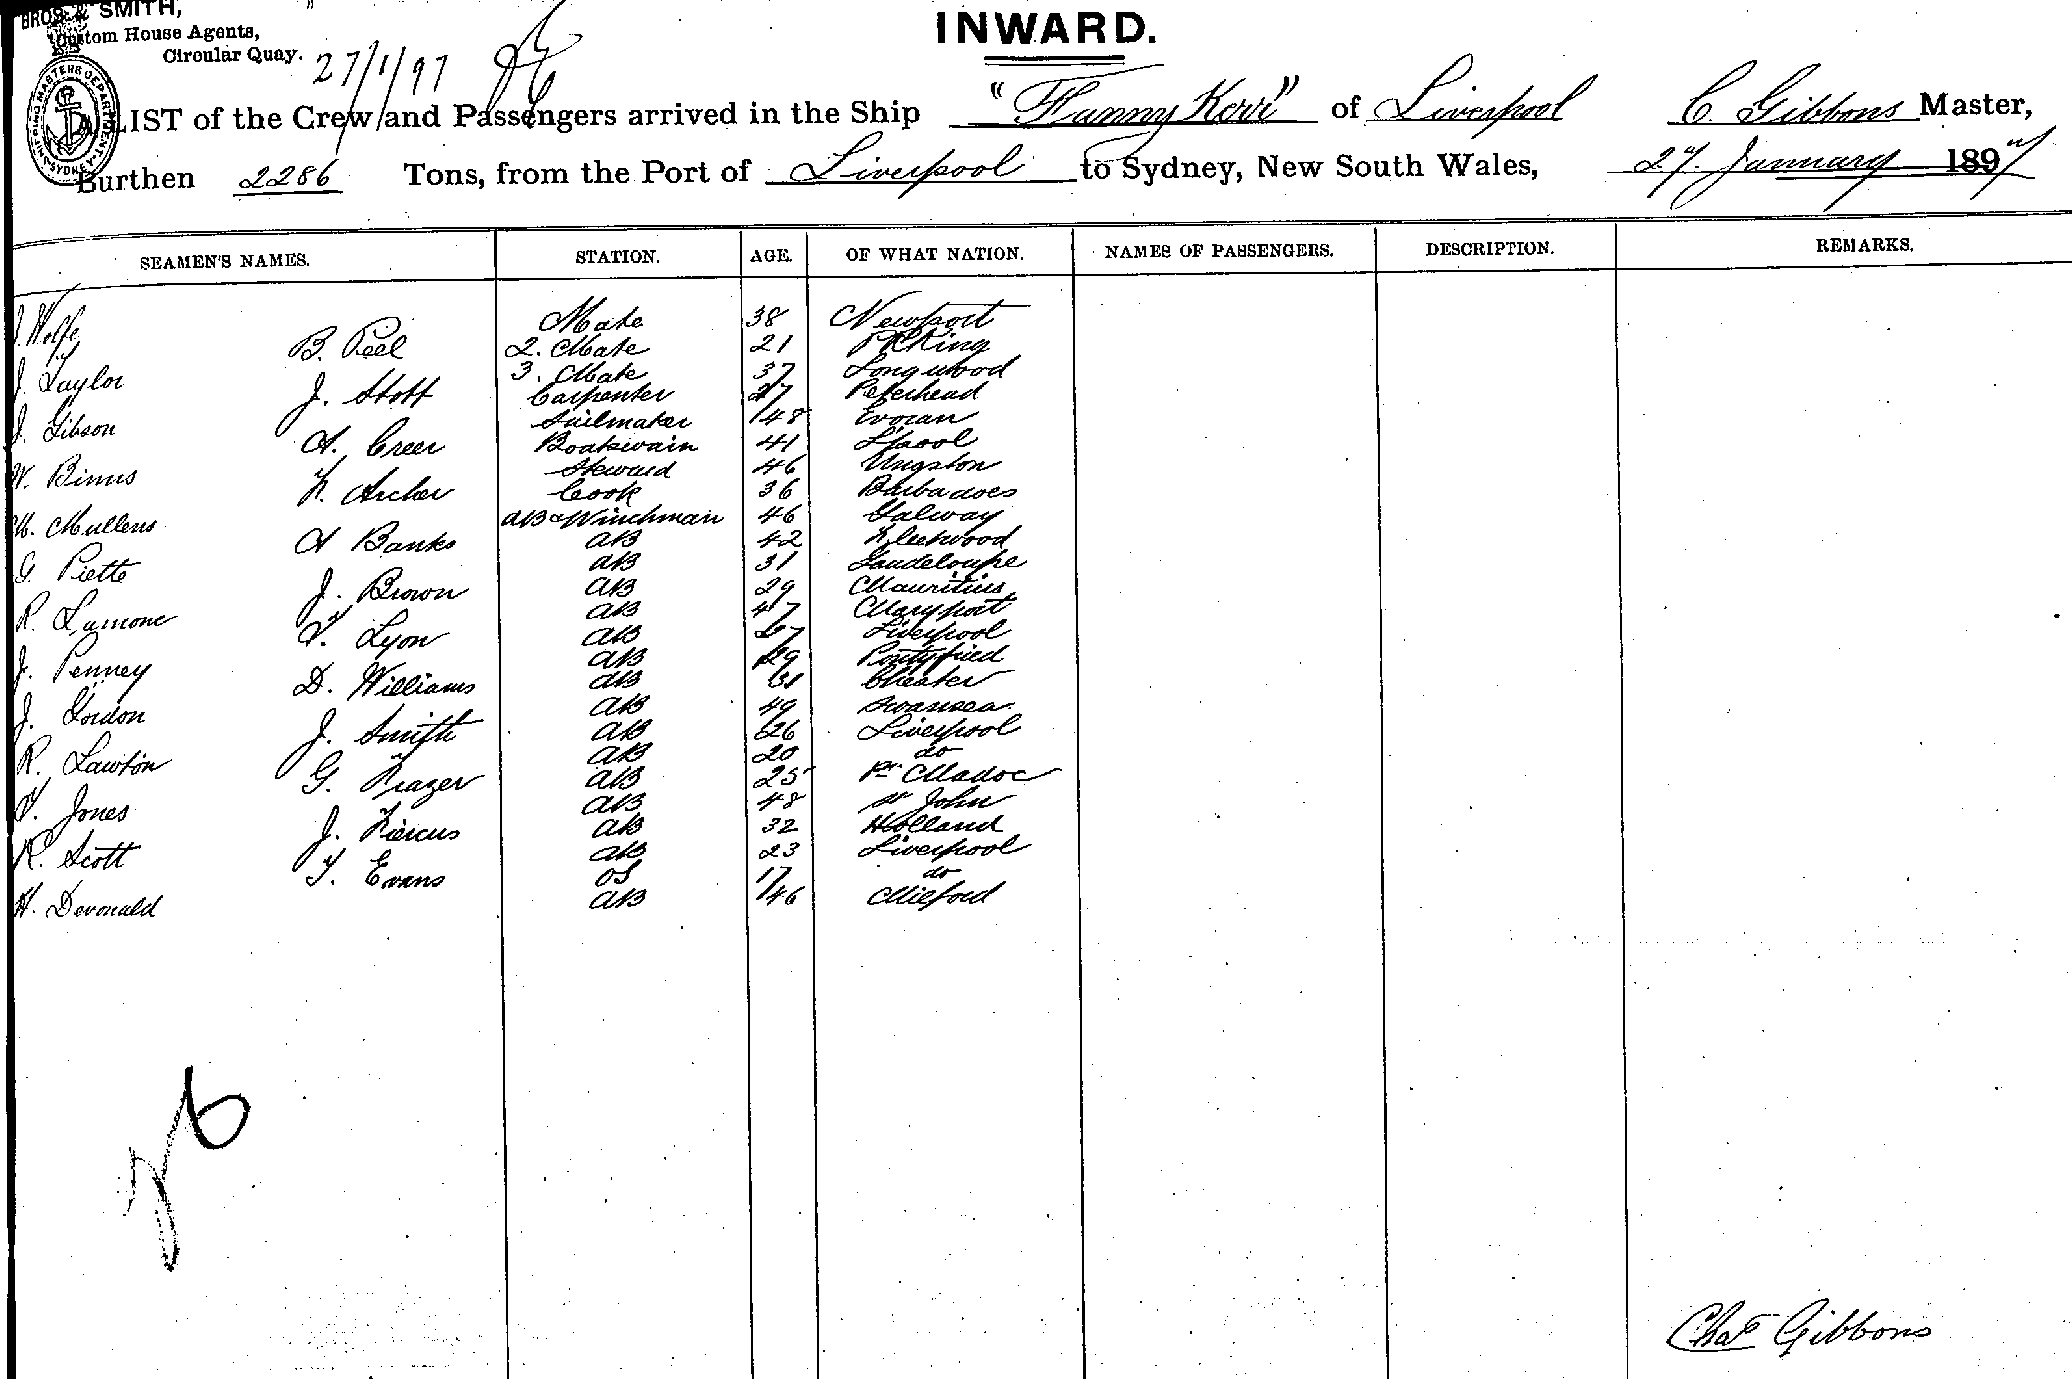 BROS. & SMITH,
Custom House Agents,
Circular Quay.
27/1/97
INWARD.
A LIST of the Crew and Passengers arrived in the Ship "Fanny Kerr" of Liverpool C. Gibbons Master,
Burthen 2286 Tons, from the Port of Liverpool to Sydney, New South Wales, 27. January 1897
SEAMEN'S NAMES. STATION. AGE. OF WHAT NATION. NAMES OF PASSENGERS. DESCRIPTION. REMARKS.
J. Wolfe Mate 38 Newport
B. Peel 2. Mate 21
J. Taylor 3. Mate 37 Longwood
J. Stott Carpenter 27 Peterhead
J. Gibson Sailmaker 48
A. Creer Boatswain 41 L'pool
W. Binns Steward 46
F. Archer Cook 36 Barbadoes
M. Mullens AB & Winchman 46 Galway
A Banks AB 42 Fleetwood
G. Piette AB 31 Gaudeloupe
J. Brown AB 29 Mauritius
R. Lamone AB 47 Maryport
T. Lyon AB Liverpool
J. Penney AB 29
D. Williams AB 31 Chester
J. Gordon AB 49 Swansea
J. Smith AB 26 Liverpool
R. Lawton AB 20 do
G. Frazer AB 25 Pt Madoc
T. Jones AB 48 St John
J. AB 32 Holland
R. Scott AB 23 Liverpool
T. Evans OS 17 do
H. Devonald AB 46 Milford
26
Chas Gibbons